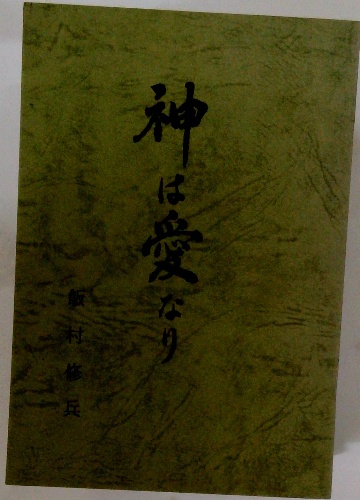 神は愛なり
飯村修兵